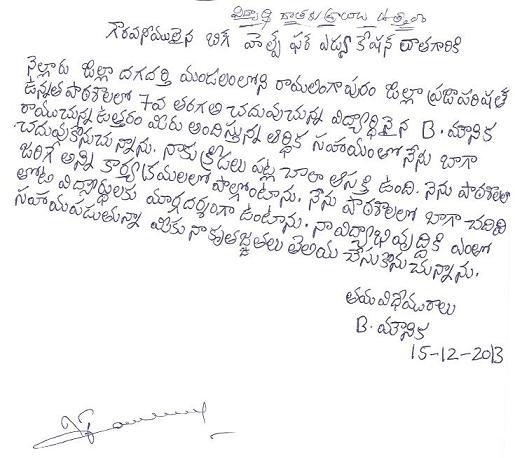 విద్యార్థి దాతకు వ్రాయు ఉత్తరం
గౌరవనీయులైన బిగ్ హెల్ప్ ఫర్ ఎడ్యూకేషన్ దాతగారికి
నెల్లూరు జిల్లా దగదర్తి మండలంలోని రామలింగాపురం జిల్లా ప్రజాపరిషత్
ఉన్నత పాఠశాలలో 7వ తరగతి చదువుచున్న విద్యార్థినియైన B. మౌనిక
రాయుచున్న ఉత్తరం మీరు అందిస్తున్న ఆర్థిక సహాయంతో నేను బాగా
చదువుకొనుచున్నాను. నాకు క్రీడలు పట్ల చాలా ఆసక్తి ఉంది. నేను పాఠశాలలో
జరిగే అన్ని కార్యక్రమాలలో పాల్గొంటాను. నేను పాఠశాలలో బాగా చదివి
తోటి విద్యార్థులకు మార్గదర్శంగా ఉంటాను. నా విద్యాభివృద్ధికి ఎంతో
సహాయపడుతున్నా మీకు నా కృతజ్ఞతలు తెలియ చేసుకొనుచున్నాను.
తమ విధేయురాలు
B. మౌనిక
15-12-2013